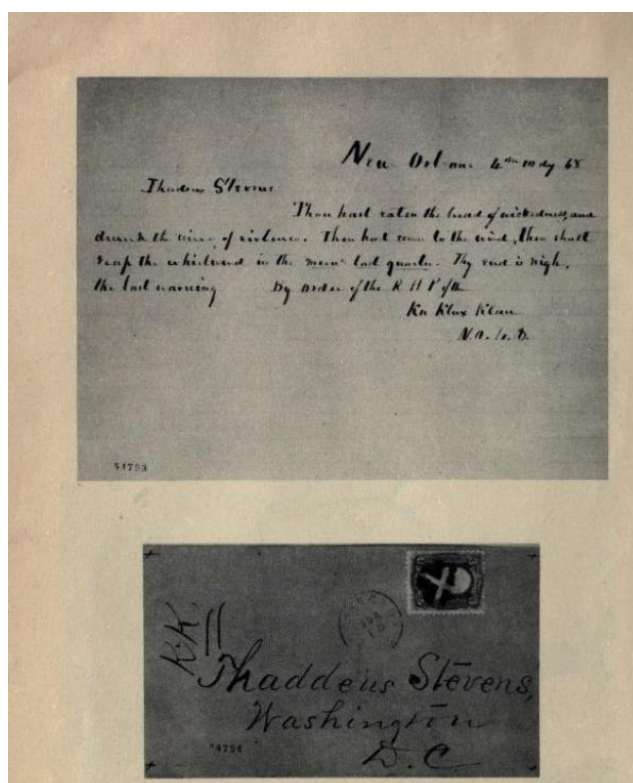 New Orleans 4th May 68
Thadeus Stevens
Thou hast eaten the bread of wickedness, and
drunk the wine of violence. Thou hast sown to the wind, thou shalt
reap the whirlwind in the moon's last quarter. Thy end is nigh,
the last warning By order of the
Ku Klux Klan
54793
K.K.
Thaddeus Stevens,
Washington
D.C